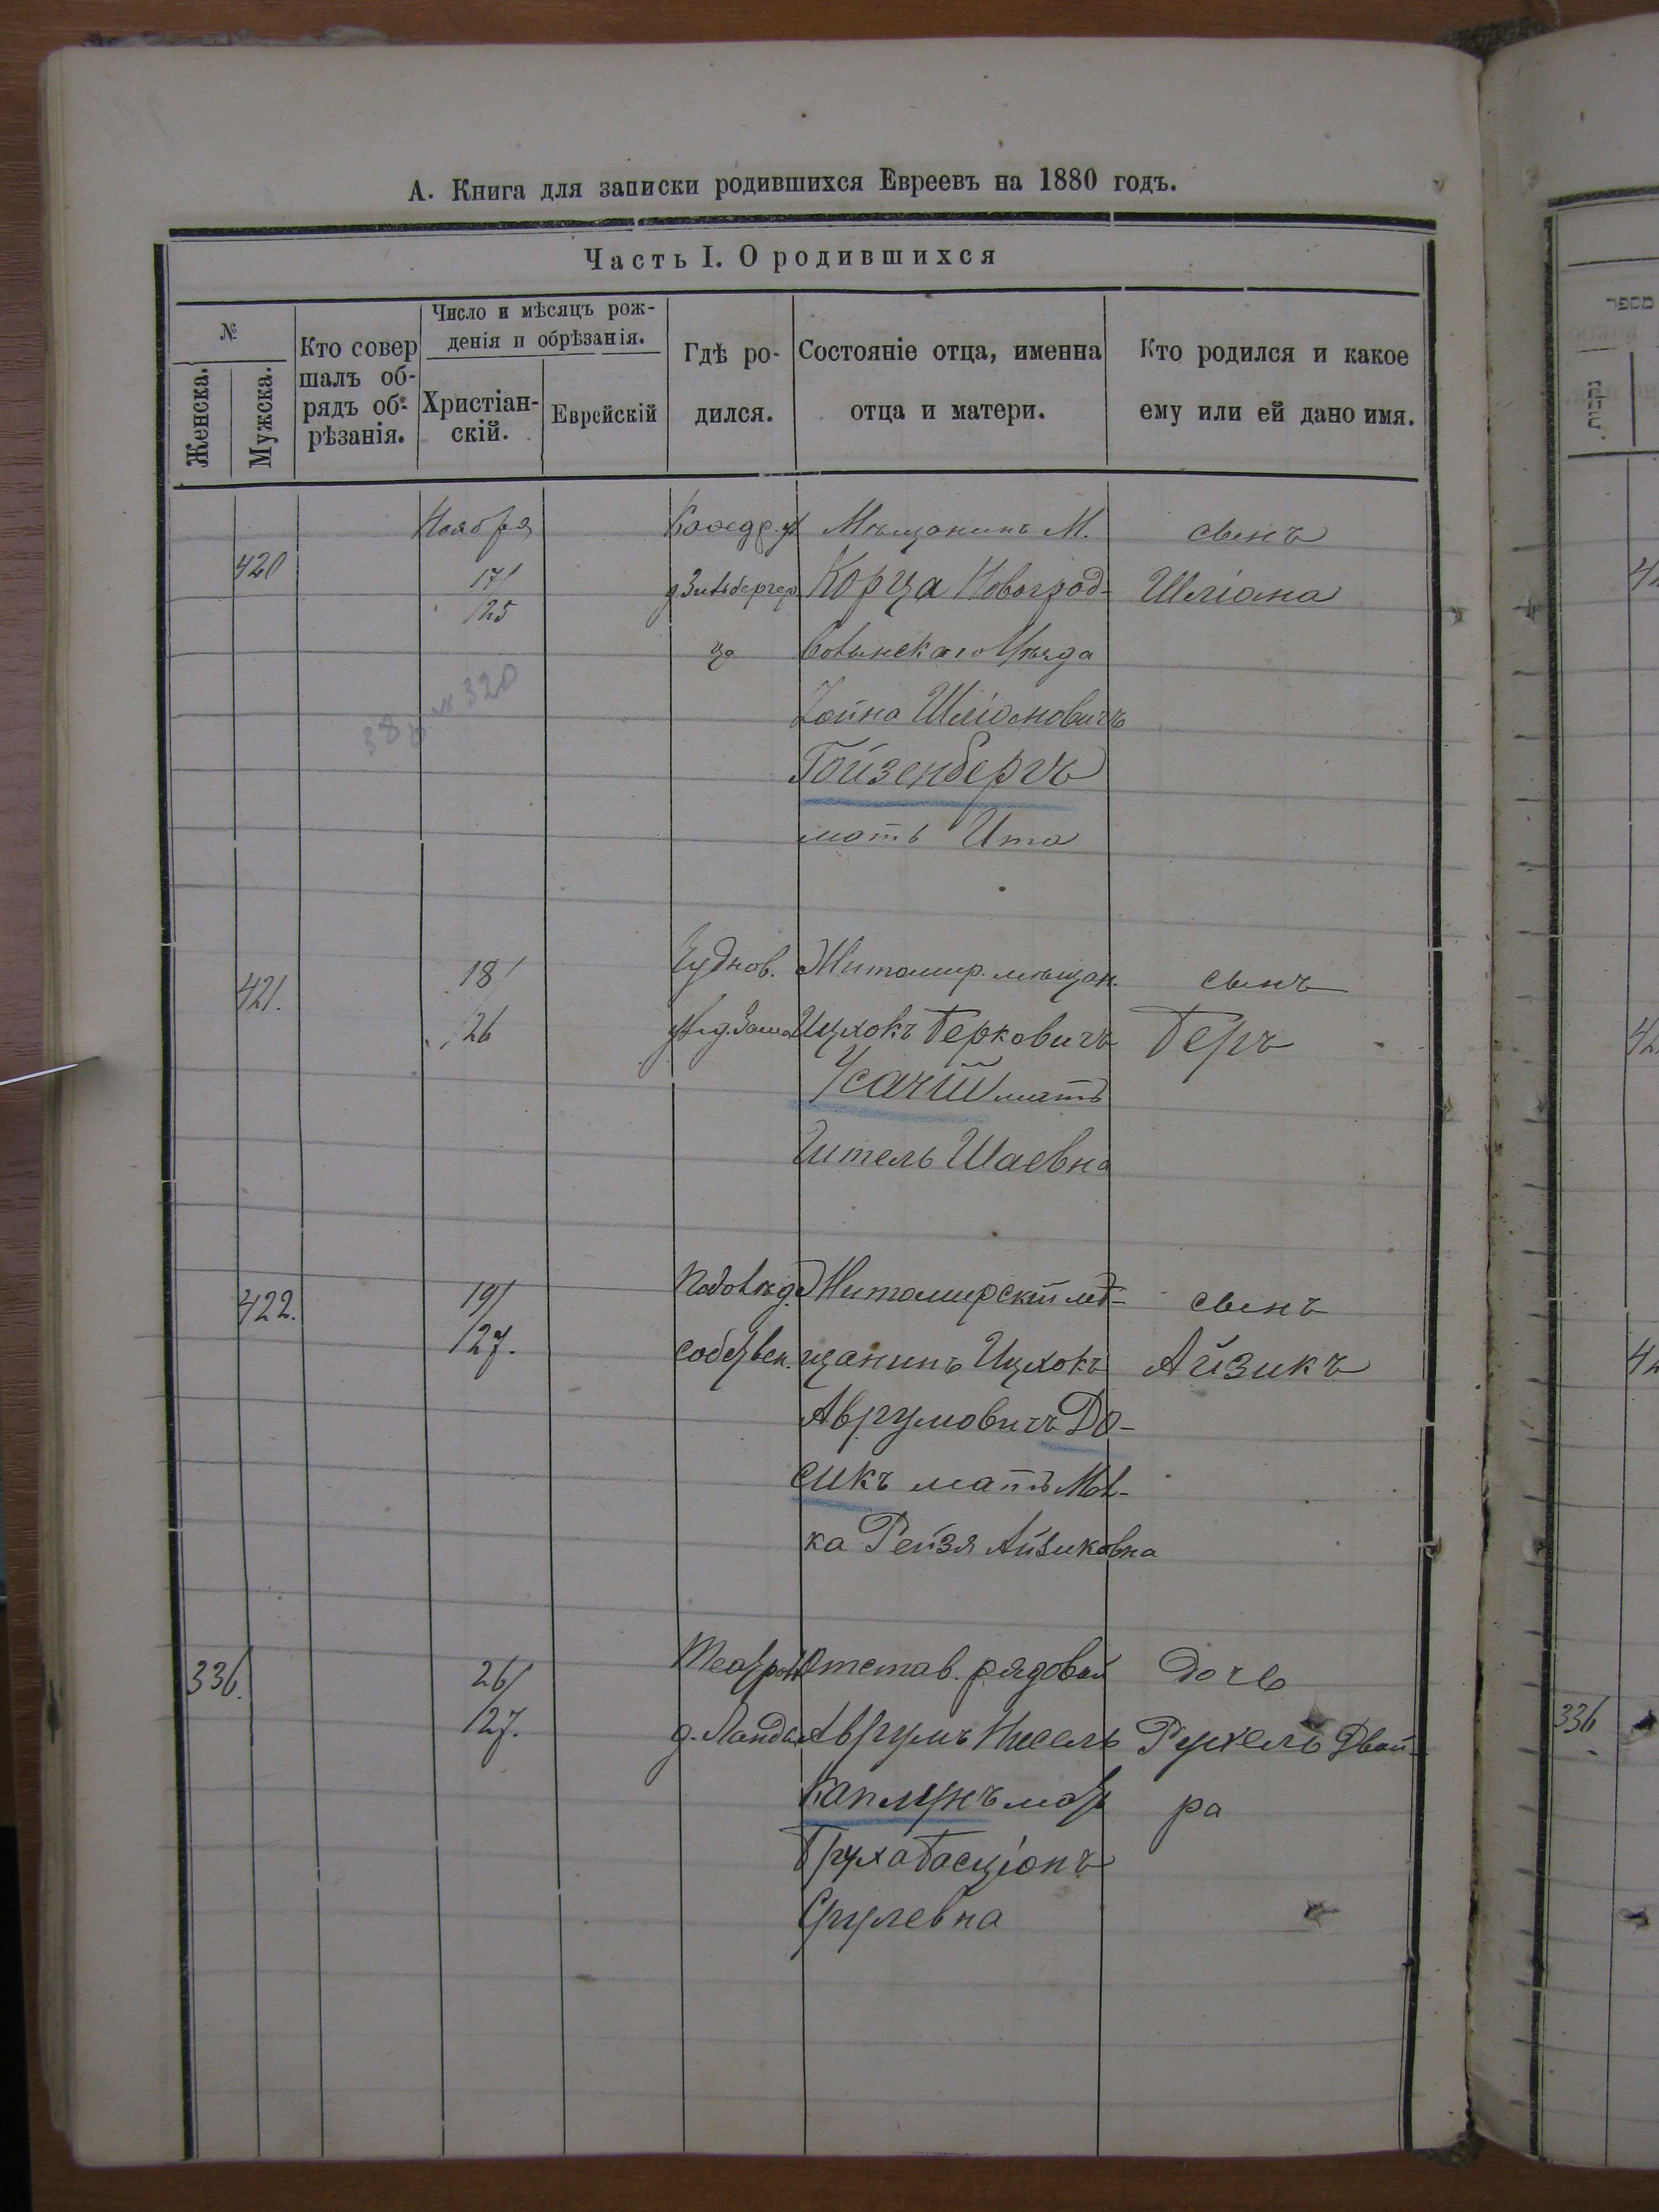 А. Книга для записки родившихся Евреевъ на 1880 годъ.
Часть I. О родившихся
№
Женска.
Мужска.
Кто совер
шалъ об-
рядъ об-
рѣзанія.
Число и мѣсяцъ рож-
денія и обрѣзанія.
Христіан-
скій.
Еврейскій
Гдѣ ро-
дился.
Состояніе отца, именна
отца и матери.
Кто родился и какое
ему или ей дано имя.
420
Ноября
17/
/25
Кафедр. ул
д. Зильбергер
ца
Мѣщанинъ М.
Корца Новоград-
волынскаго Уѣзда
Хойна Шліомовичъ
Гойзенбергъ
мать Ита
сынъ
Шліома
320
421.
18/
/26
Чуднов.
Житомир. мѣщан.
Ицхокъ Берковичъ
Усачій мать
Гитель Шаевна
сынъ
Беръ
422.
19/
/27.
Подолъ д.
собствен.
Житомирскій мѣ-
щанинъ Ицхокъ
Аврумовичъ До-
сикъ мать Мал-
ка Рейзя Айзиковна
сынъ
Айзикъ
336.
26/
/27.
д. Ланда
Отстав. рядовой
Аврумъ Нисель
Каплунъ мать
Бруха Басціонъ
Срулевна
Дочь
Рухель Двой-
ра
מספר
נקבות.
336